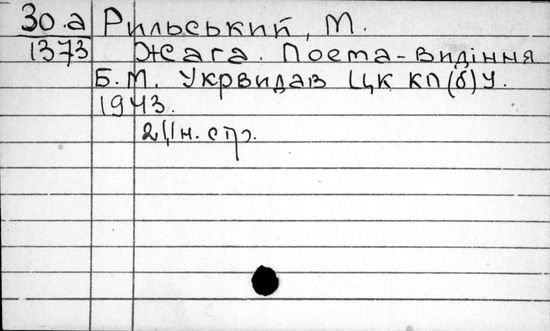 30.а Рильський, М.
1373 Жага. Поема-видіння
Б.М. Укрвидав ЦК КП(б)У.
1943.
н. стр.